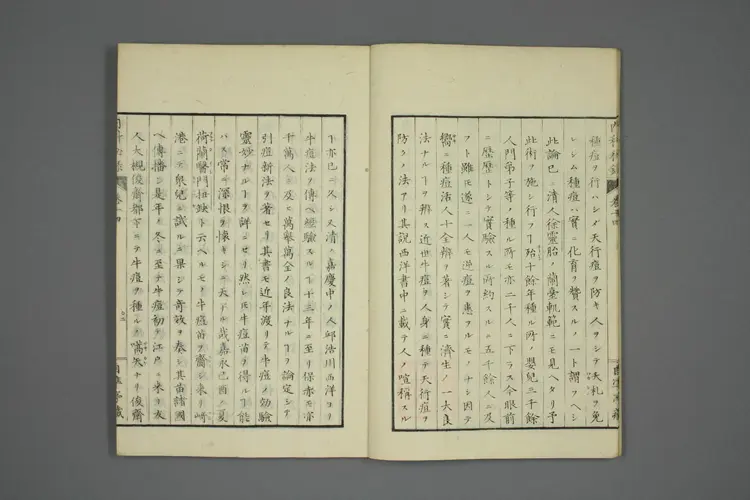 種痘ヲ行ハシメ天行痘ヲ防キ人ヲシテ夭札ヲ免
シム種痘ハ實ニ化育ヲ賛スルノ一ト謂フヘシ
此論已ニ清人徐靈胎ノ蘭臺軌範ニモ見ヘタリ予
此術ヲ施シ行フヿ殆十餘年種ル所ノ嬰兒二千餘
人門弟子等ノ種ル所モ亦二千人ニ下ラス今眼前
ニ歷歷トシテ實驗スル所約スルニ五千餘人ニ及
フト雖モ遂ニ一人モ逆痘ヲ患フルモノナシ因テ
嚮ニ種痘活人十全辨ヲ著シテ實ニ濟生ノ一大良
法ナルヿヲ辨ス近世牛痘ヲ人身ニ種テ天行痘ヲ
防クノ法アリ其說西洋書中ニ載テ人ノ喧稱スル
ヿ亦已ニ久シ又清ノ嘉慶中ノ人邱浩川西洋ヨリ
牛痘法ヲ傳ヘ經驗スルヿ十三年ニ至リ保赤モ亦
千萬人ニ及ヒ萬擧萬全ノ良法ナルヿヲ論定シテ
引痘新法ヲ著セリ其書モ近年渡リテ牛痘ノ効驗
靈妙ナルヿヲ詳ニセリ然レモ牛痘苗ヲ得ルヿ能
ハス常ニ深恨ヲ懷キシニ天ナル哉嘉永己酉ノ夏
荷蘭醫門扭歇ト云ヘルモノ牛痘苗ヲ齎シ來リ崎
港ニテ衆兒ニ試ルニ果シテ奇效ヲ奏シ其苗諸國
ヘ傳播シ是年ノ冬ニ至テ牛痘初テ江戶ニ來リ友
人大槻俊齋郡等ニテ牛痘ヲ種ル嚆矢ナリ俊齋